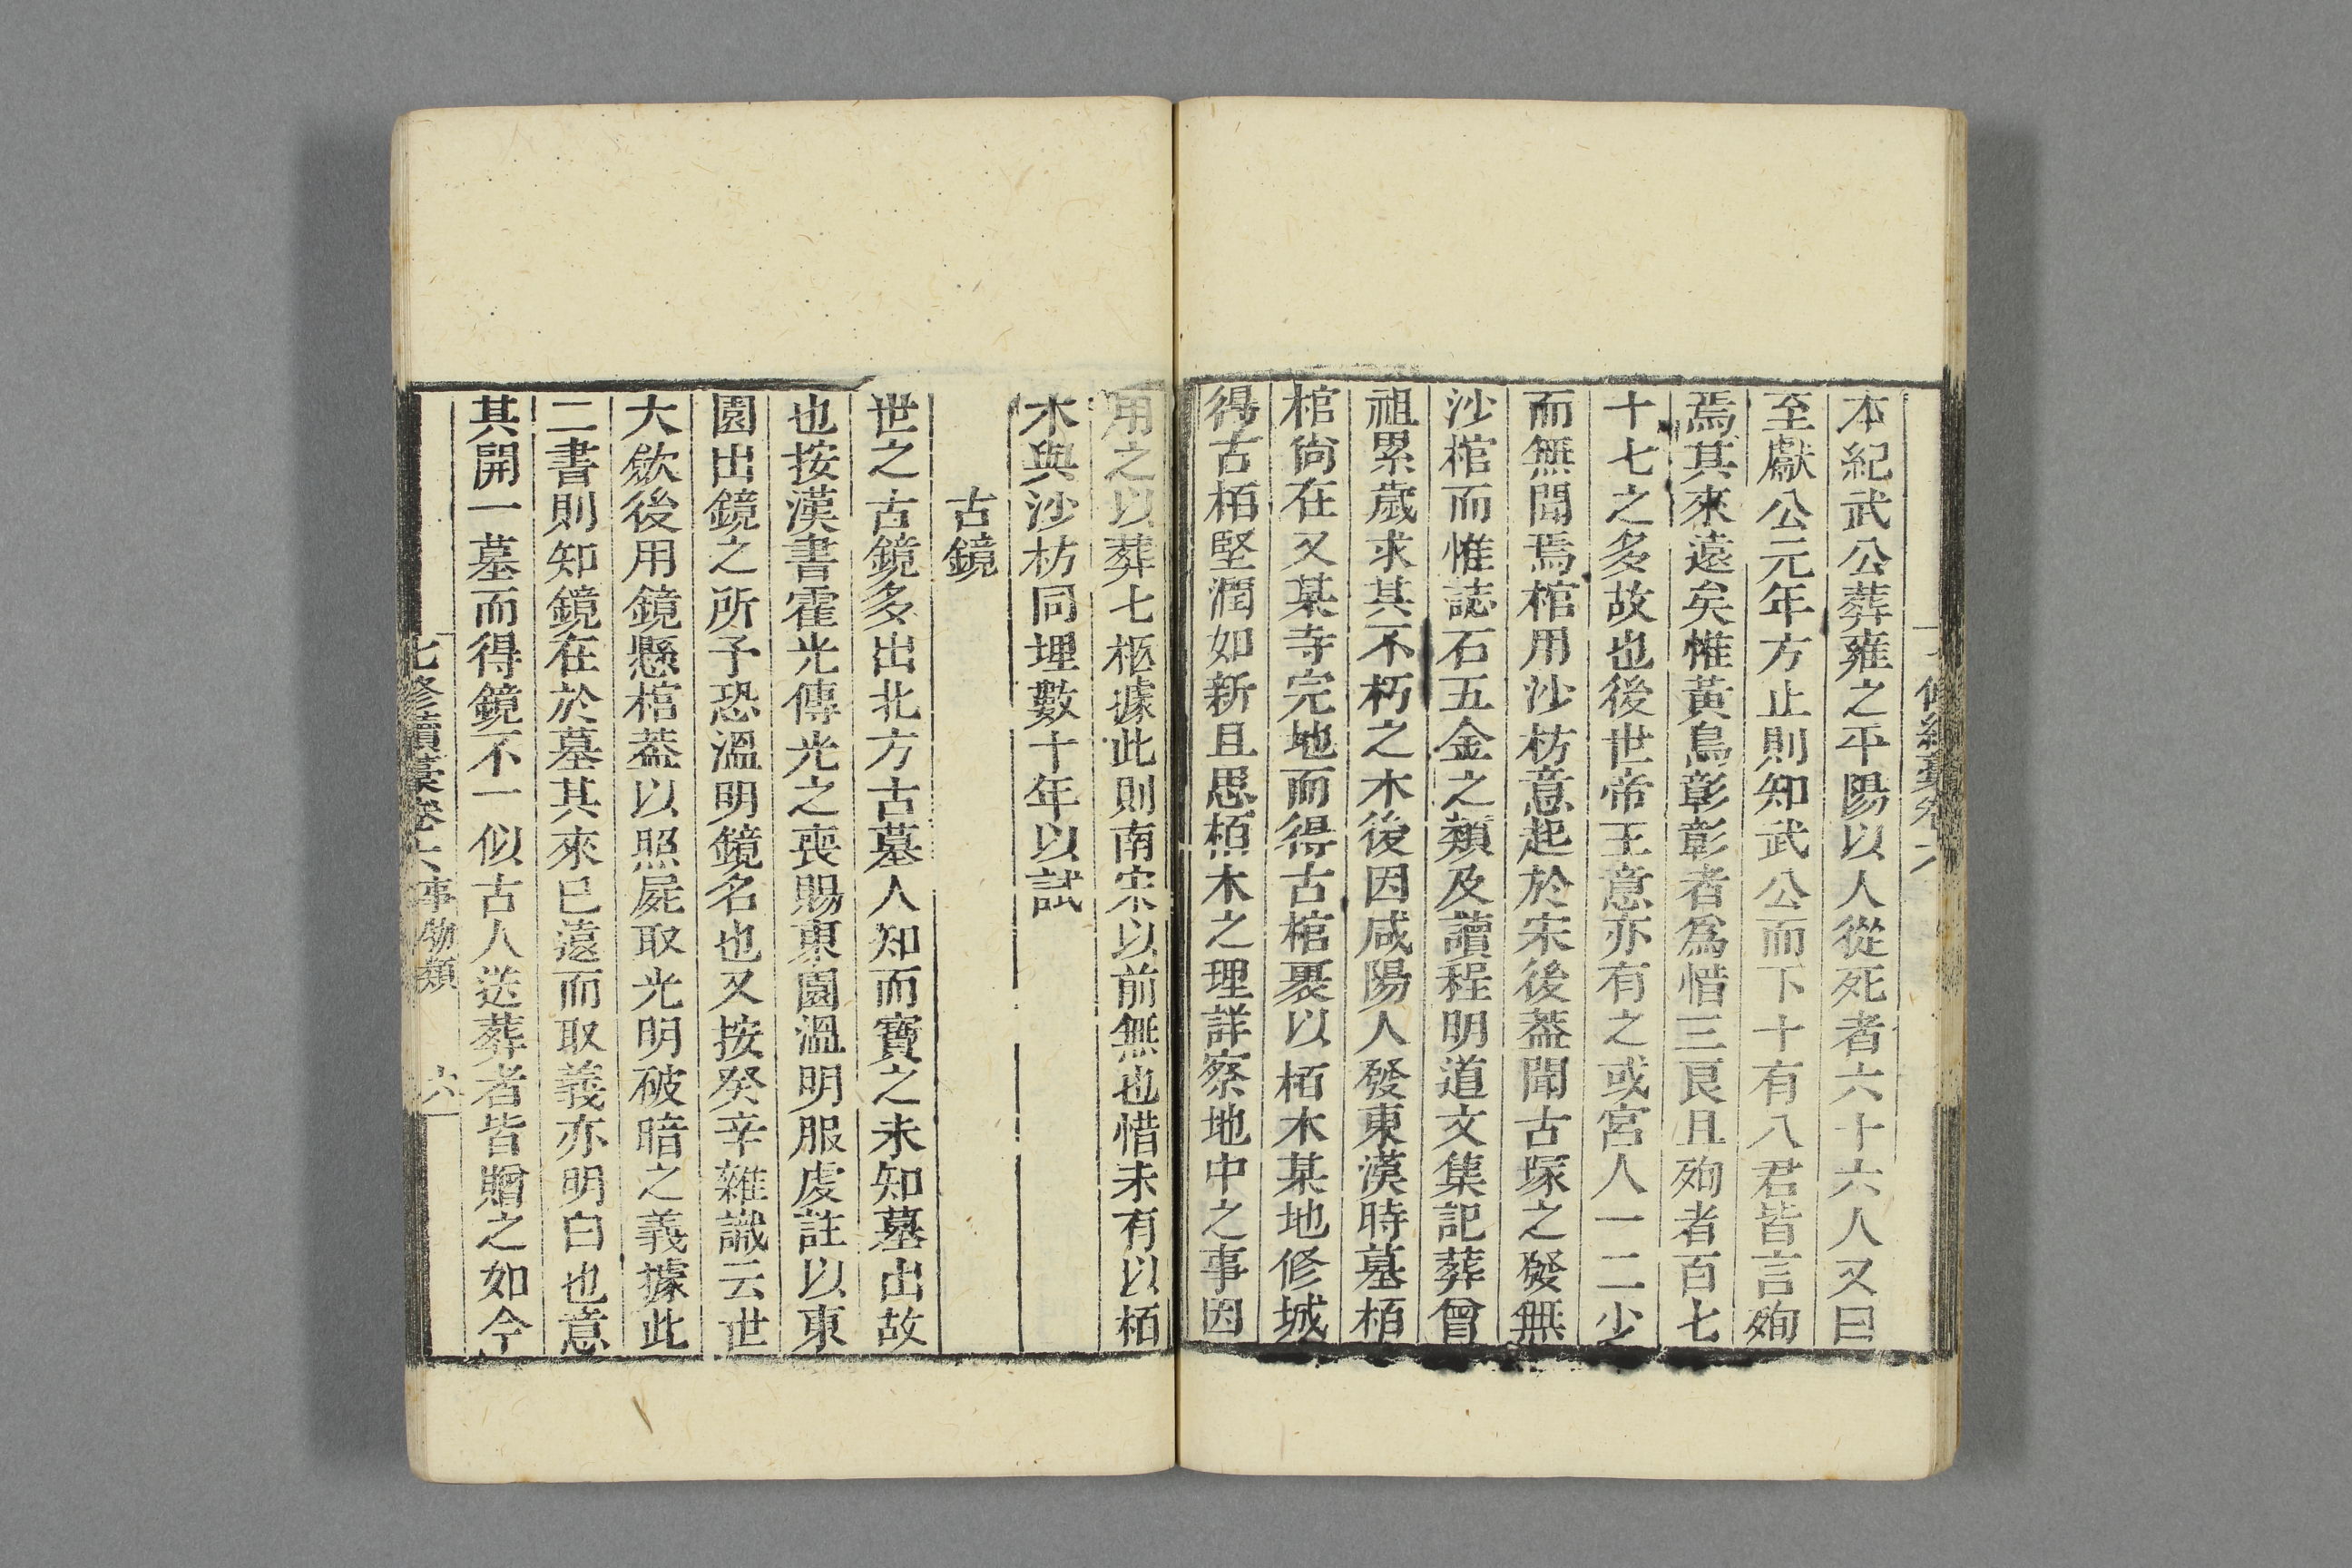 本紀武公葬雍之平陽以人從死者六十六人又曰
至獻公元年方止則知武公而下十有八君皆言殉
焉其來遠矣惟黃鳥彰彰者爲惜三良且殉者百七
十七之多故也後世帝王意亦有之或宮人一二少
而無聞焉棺用沙枋意起於宋後葢聞古塚之發無
沙棺而惟誌石五金之類及讀程明道文集記葬曾
祖累歲求其不朽之木後因咸陽人發東漢時墓栢
棺尙在又某寺完地而得古棺裹以栢木某地修城
得古栢堅潤如新且思栢木之理詳察地中之事因
用之以葬七柩據此則南宋以前無也惜未有以栢
木與沙枋同埋數十年以試
古鏡
世之古鏡多出北方古墓人知而寶之未知墓出故
也按漢書霍光傳光之喪賜東園溫明服虔註以東
園出鏡之所予恐溫明鏡名也又按癸辛雜識云世
大歛後用鏡懸棺葢以照屍取光明破暗之義據此
二書則知鏡在於墓其來已遠而取義亦明白也意
其開一墓而得鏡不一似古人送葬者皆贈之如今
七修續藁卷六 事物類 六